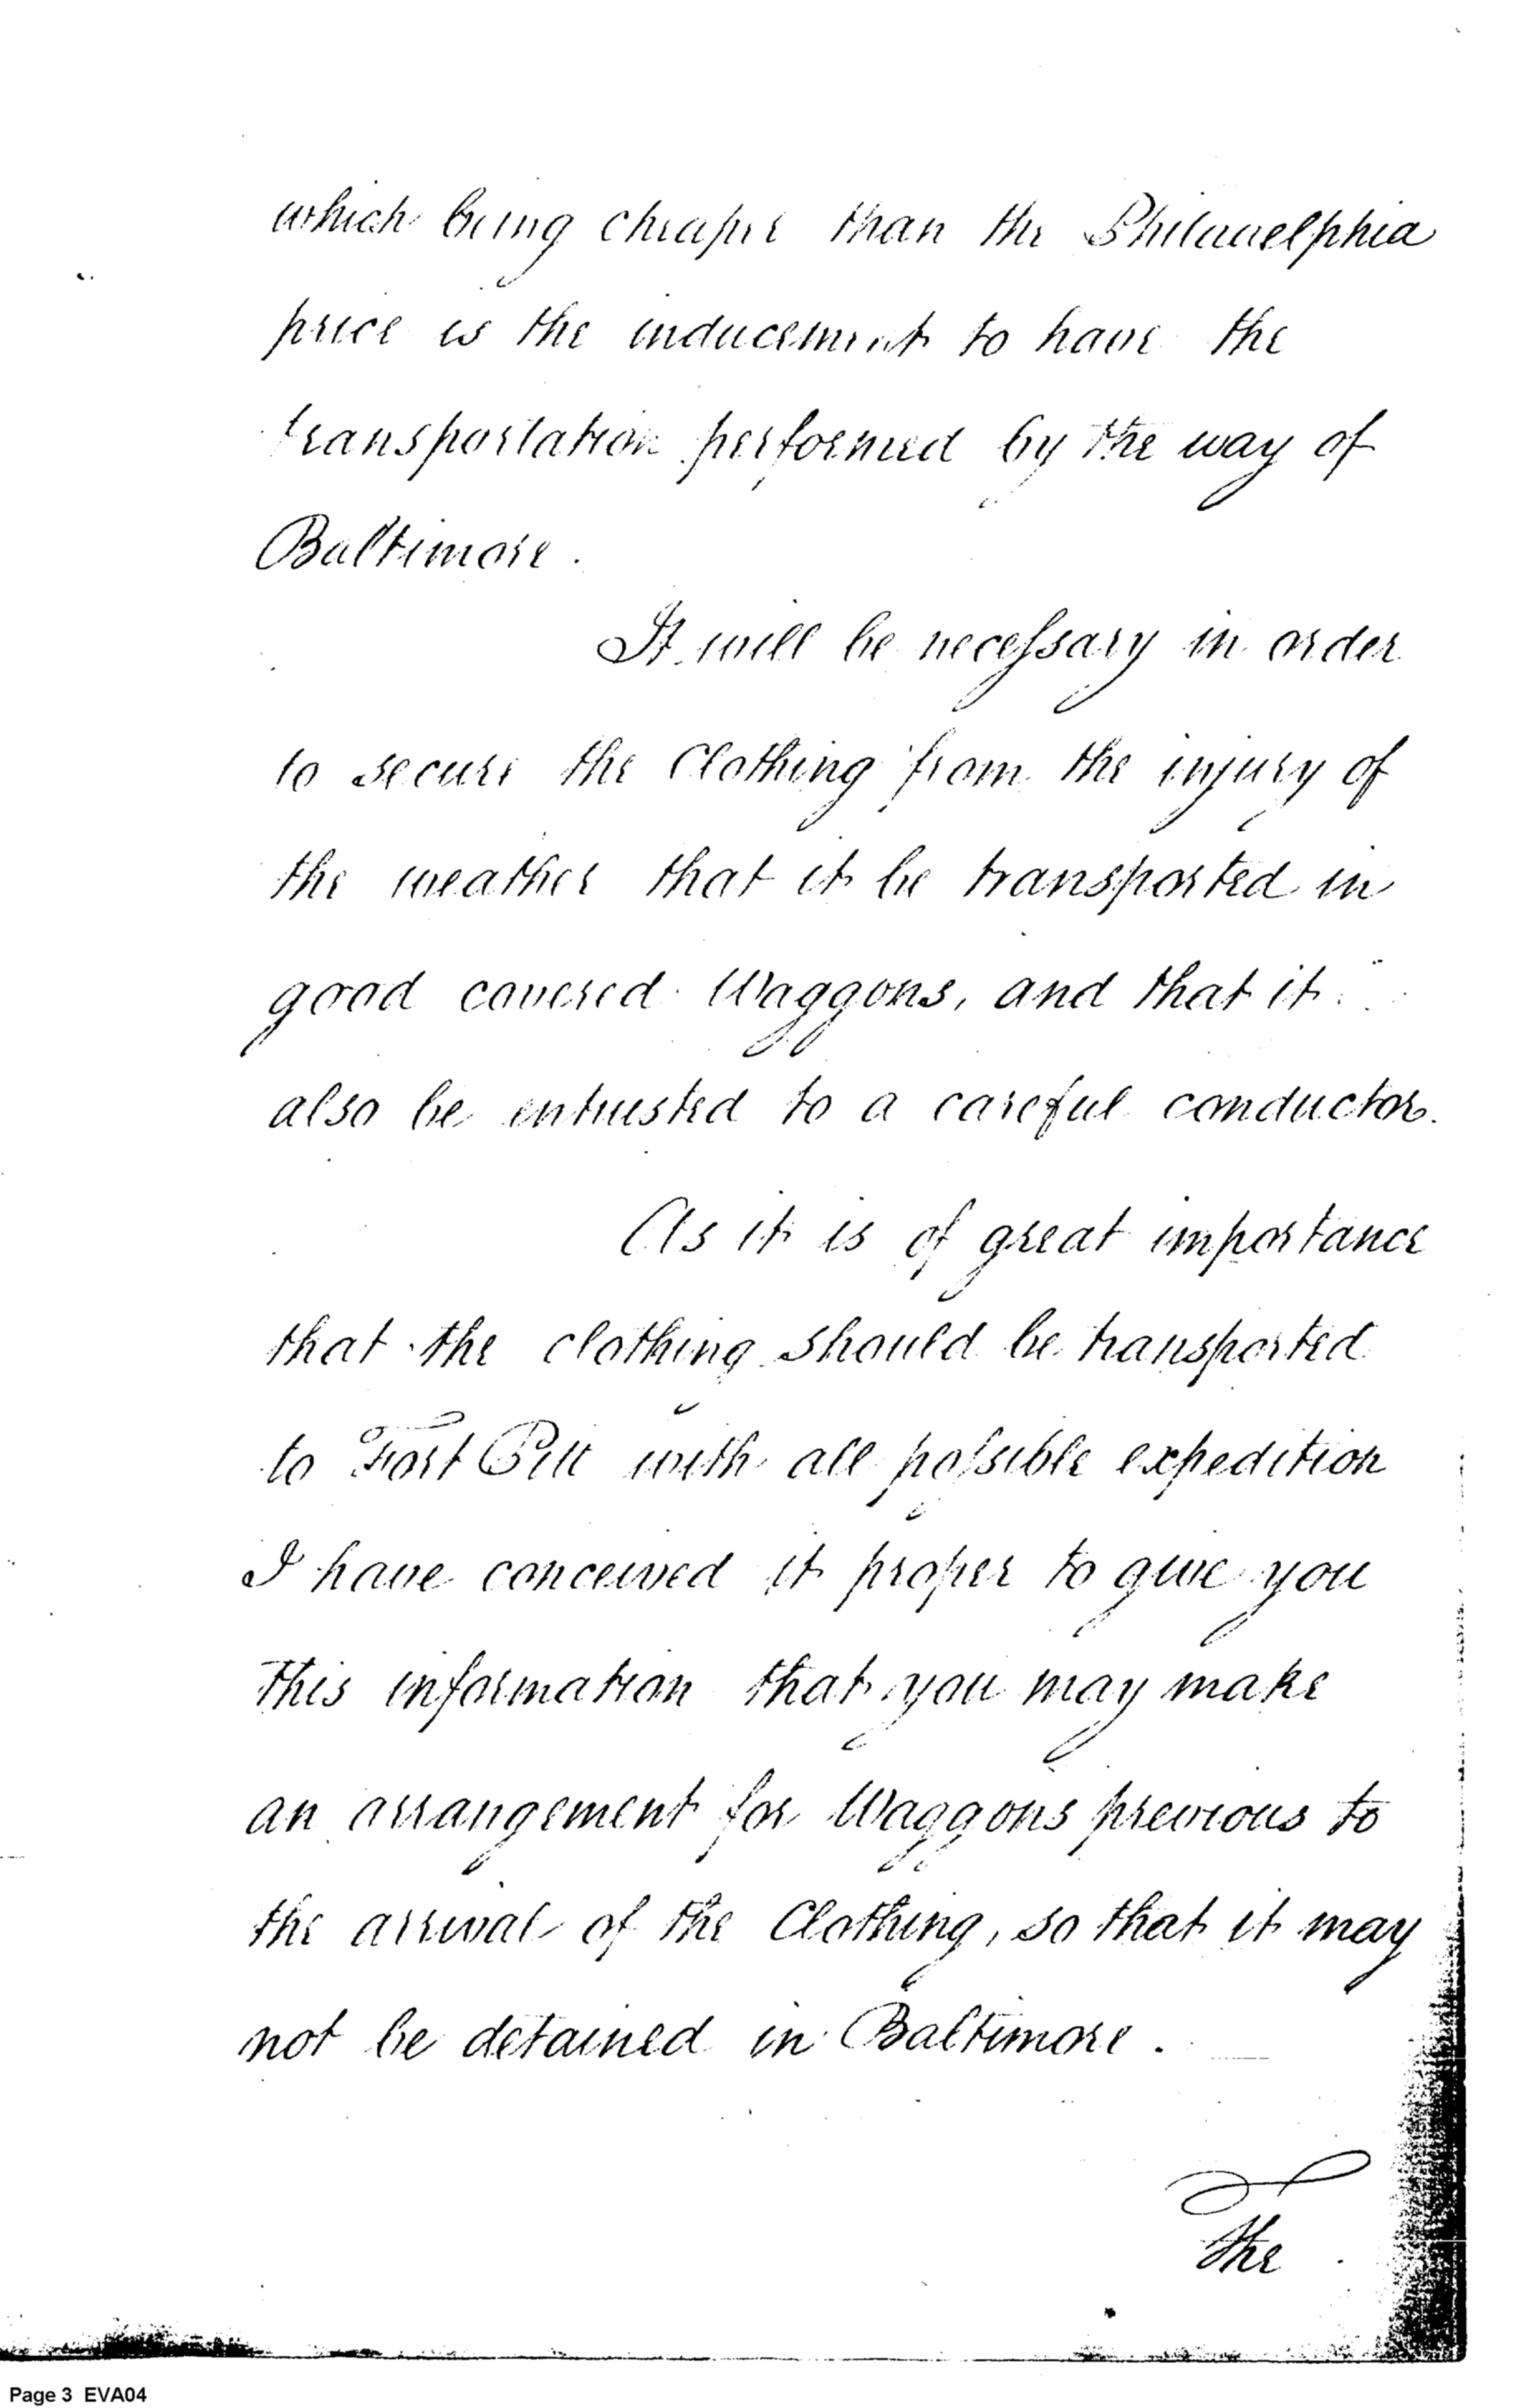 which being cheaper than the Philadelphia
price is the inducement to have the
transportation performed by the way of
Baltimore.
It will be necessary in order
to secure the Clothing from the injury of
the weather that it be transported in
good covered Waggons, and that it
also be entrusted to a careful conductor.
As it is of great importance
that the clothing should be transported
to Fort Pitt with all possible expedition
I have conceived it proper to give you
this information that you may make
an arrangement for Waggons previous to
the arrival of the Clothing, so that it may
not be detained in Baltimore.
The
Page 3 EVA04